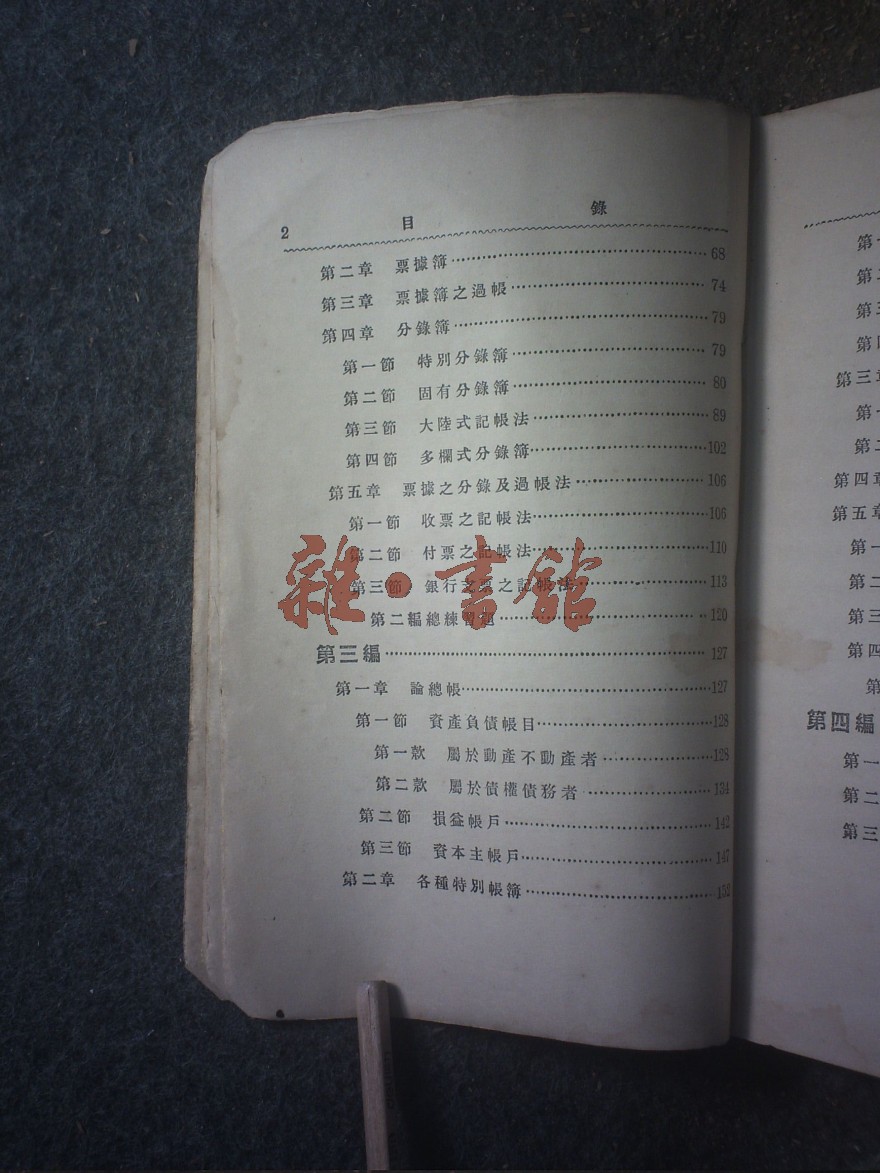 2 目 錄
第二章 票據簿 68
第三章 票據簿之過帳 74
第四章 分錄簿 79
第一節 特別分錄簿 79
第二節 固有分錄簿 80
第三節 大陸式記帳法 89
第四節 多欄式分錄簿 102
第五章 票據之分錄及過帳法 106
第一節 收票之記帳法 106
第二節 付票之記帳法 110
第三節 銀行支票之記帳法 113
第二編總練習題 120
第三編 127
第一章 論總帳 127
第一節 資產負債帳目 128
第一款 屬於動產不動產者 128
第二款 屬於債權債務者 134
第二節 損益帳戶 142
第三節 資本主帳戶 147
第二章 各種特別帳簿 152
雜·書館
第三章
第四章
第五章
第二
第三
第四
第四編
第一
第二
第三